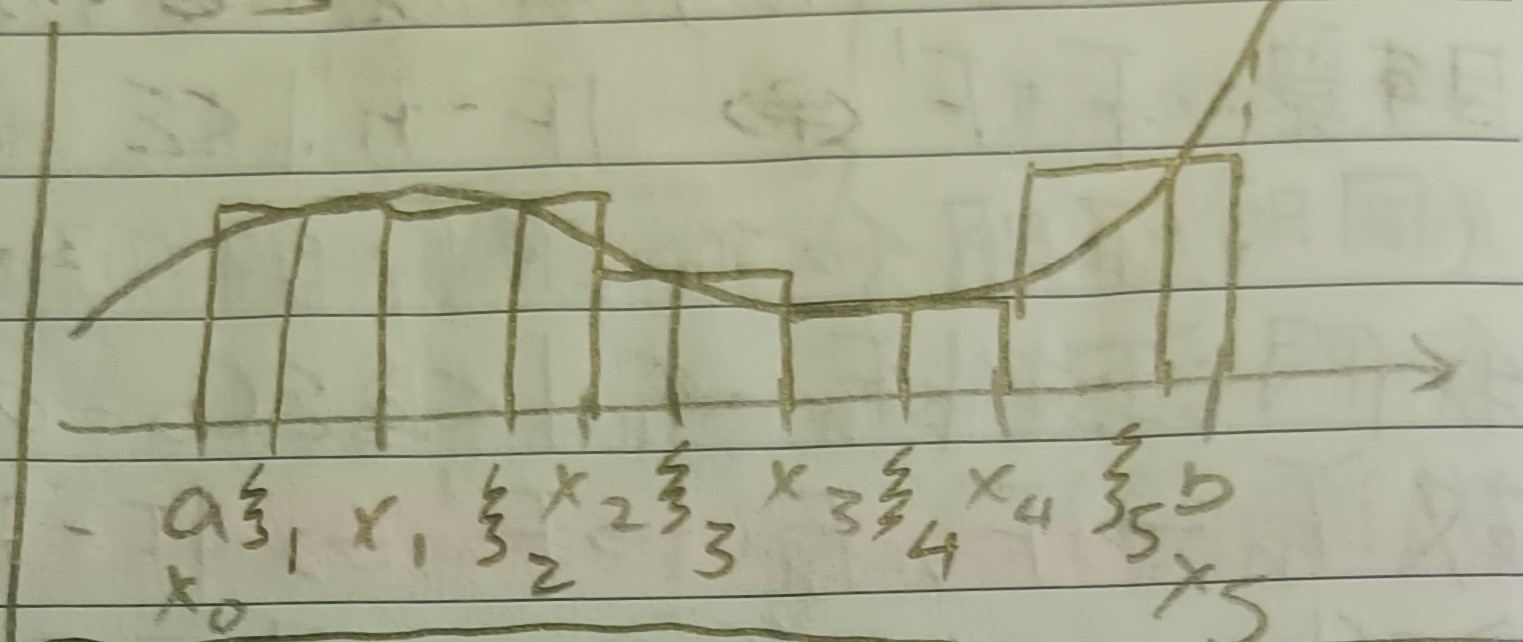 a ξ₁ x₁ ξ₂ x₂ ξ₃ x₃ ξ₄ x₄ ξ₅ b
x₀ x₅